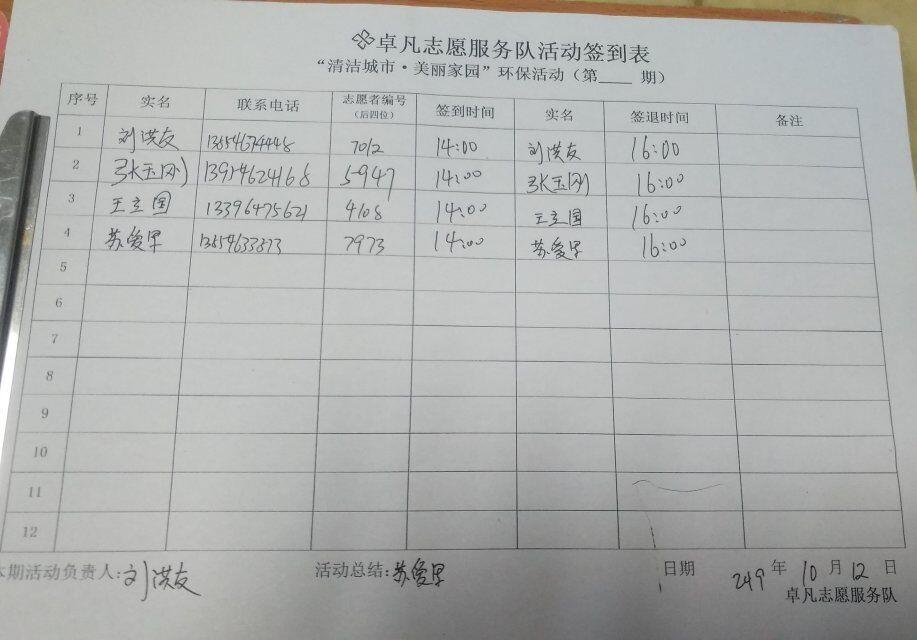 卓凡志愿服务队活动签到表
“清洁城市·美丽家园”环保活动（第____期）
序号 实名 联系电话 志愿者编号（后四位） 签到时间 实名 签退时间 备注
1 刘洪友 13654674448 7012 14:00 刘洪友 16:00
2 张玉刚 13954624168 5947 14:00 张玉刚 16:00
3 王立国 13396475621 4108 14:00 王立国 16:00
4 苏爱早 13654633373 7973 14:00 苏爱早 16:00
5
6
7
8
9
10
11
12
本期活动负责人:刘洪友 活动总结:苏爱早 日期 2019 年 10 月 12 日
卓凡志愿服务队